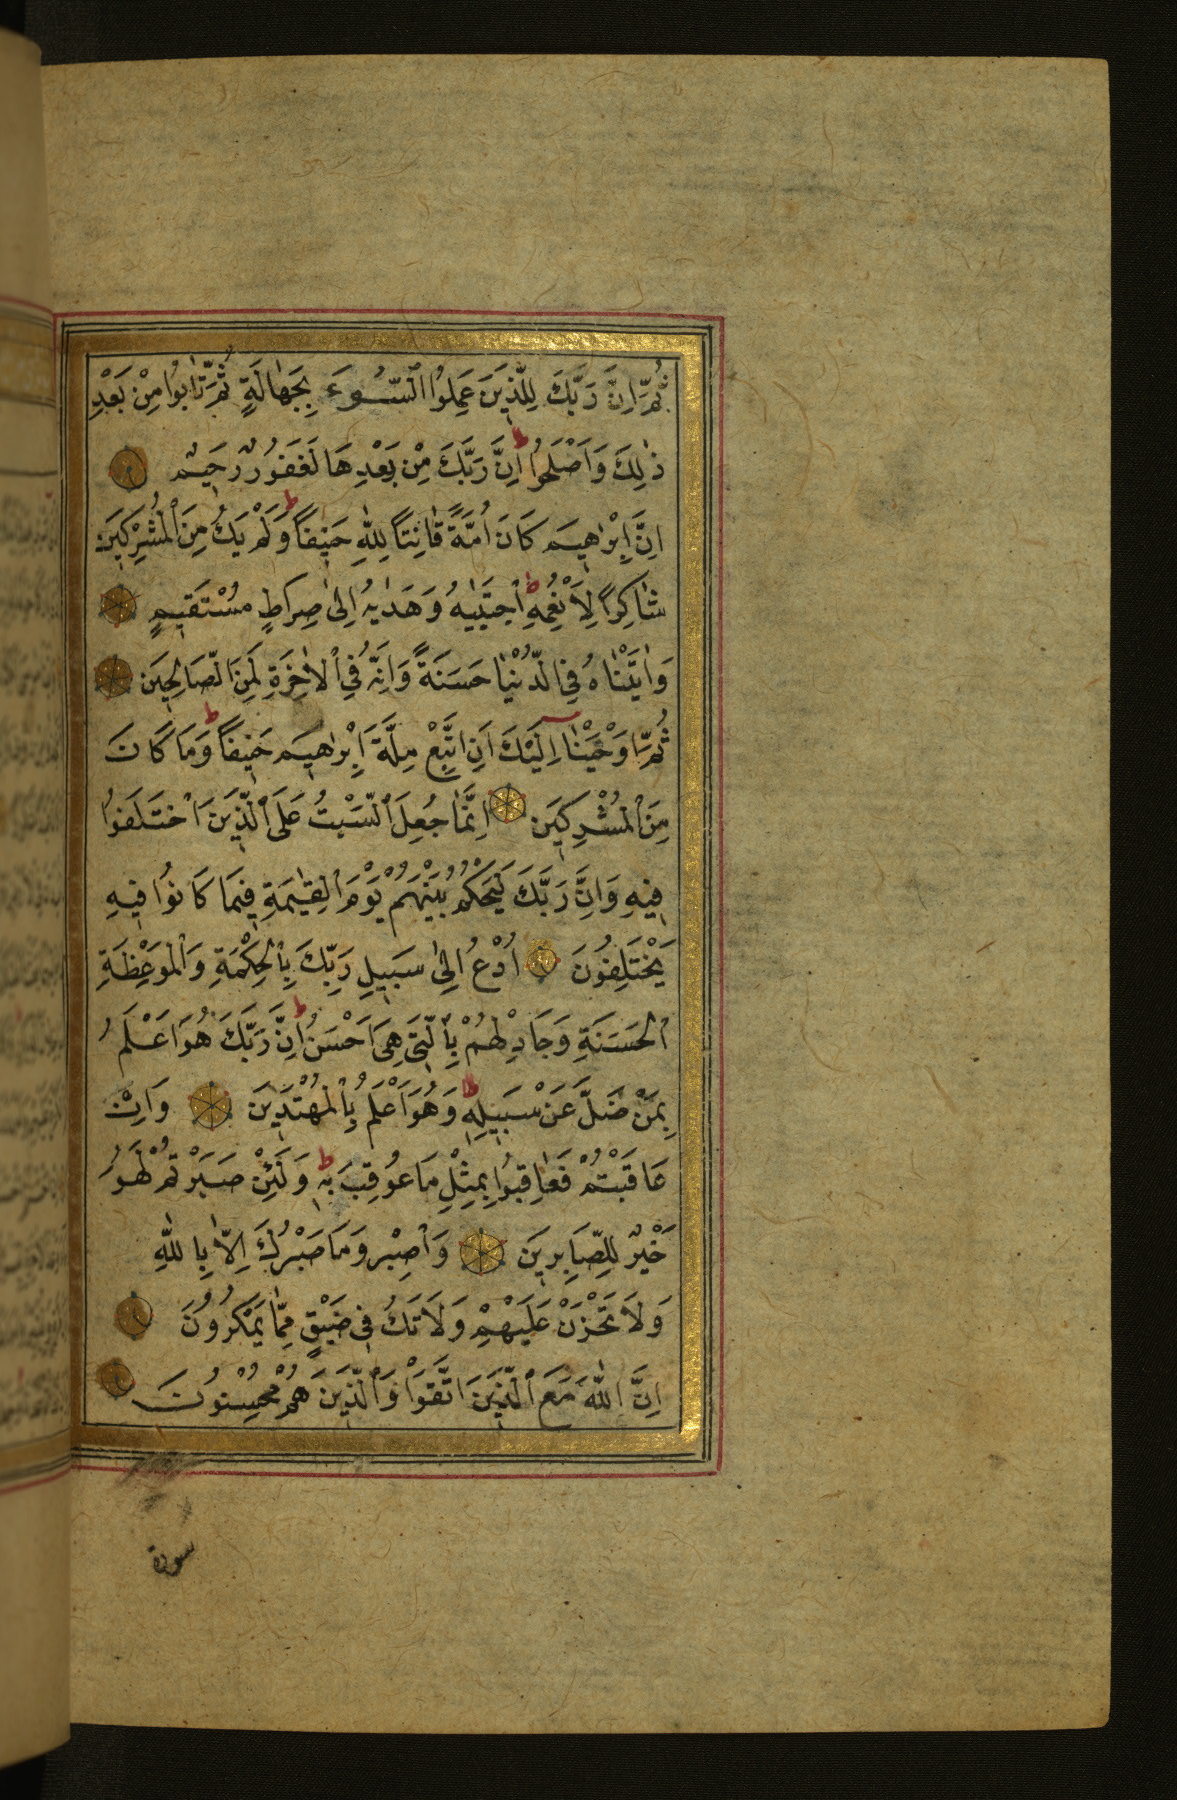 ثُمَّ اِنَّ رَبَّكَ لِلَّذ۪ينَ عَمِلُوا السُّوءَ بِجَهَالَةٍ ثُمَّ تَابُوا مِنْ بَعْدِ
ذٰلِكَ وَاَصْلَحُوا ط اِنَّ رَبَّكَ مِنْ بَعْدِهَا لَغَفُورٌ رَح۪يمٌ
اِنَّ اِبْرٰه۪يمَ كَانَ اُمَّةً قَانِتًا لِلّٰهِ حَن۪يفًا ط وَلَمْ يَكُ مِنَ الْمُشْرِك۪ينَ
شَاكِرًا لِاَنْعُمِهِ ط اِجْتَبٰيهُ وَهَدٰيهُ اِلٰى صِرَاطٍ مُسْتَق۪يمٍ
وَاٰتَيْنَاهُ فِي الدُّنْيَا حَسَنَةً وَاِنَّهُ فِي الْاٰخِرَةِ لَمِنَ الصَّالِح۪ينَ
ثُمَّ اَوْحَيْنَا اِلَيْكَ اَنِ اتَّبِعْ مِلَّةَ اِبْرٰه۪يمَ حَن۪يفًا ط وَمَا كَانَ
مِنَ الْمُشْرِك۪ينَ اِنَّمَا جُعِلَ السَّبْتُ عَلَى الَّذ۪ينَ اخْتَلَفُوا
ف۪يهِ وَاِنَّ رَبَّكَ لَيَحْكُمُ بَيْنَهُمْ يَوْمَ الْقِيٰمَةِ ف۪يمَا كَانُوا ف۪يهِ
يَخْتَلِفُونَ اُدْعُ اِلٰى سَب۪يلِ رَبِّكَ بِالْحِكْمَةِ وَالْمَوْعِظَةِ
الْحَسَنَةِ وَجَادِلْهُمْ بِالَّت۪ي هِيَ اَحْسَنُ ط اِنَّ رَبَّكَ هُوَ اَعْلَمُ
بِمَنْ ضَلَّ عَنْ سَب۪يلِه۪ ط وَهُوَ اَعْلَمُ بِالْمُهْتَد۪ينَ وَاِنْ
عَاقَبْتُمْ فَعَاقِبُوا بِمِثْلِ مَا عُوقِبَ بِه۪ ط وَلَئِنْ صَبَرْتُمْ لَهُوَ
خَيْرٌ لِلصَّابِر۪ينَ وَاصْبِرْ وَمَا صَبْرُكَ اِلَّا بِاللّٰهِ
وَلَا تَحْزَنْ عَلَيْهِمْ وَلَا تَكُ ف۪ي ضَيْقٍ مِمَّا يَمْكُرُونَ
اِنَّ اللّٰهَ مَعَ الَّذ۪ينَ اتَّقَوْا وَالَّذ۪ينَ هُمْ مُحْسِنُونَ
سورة